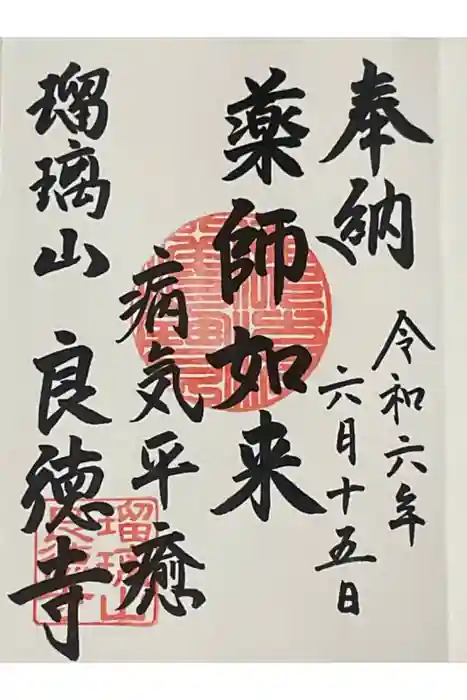 奉納
令和六年
六月十五日
薬師如来
病気平癒
瑠璃山 良徳寺